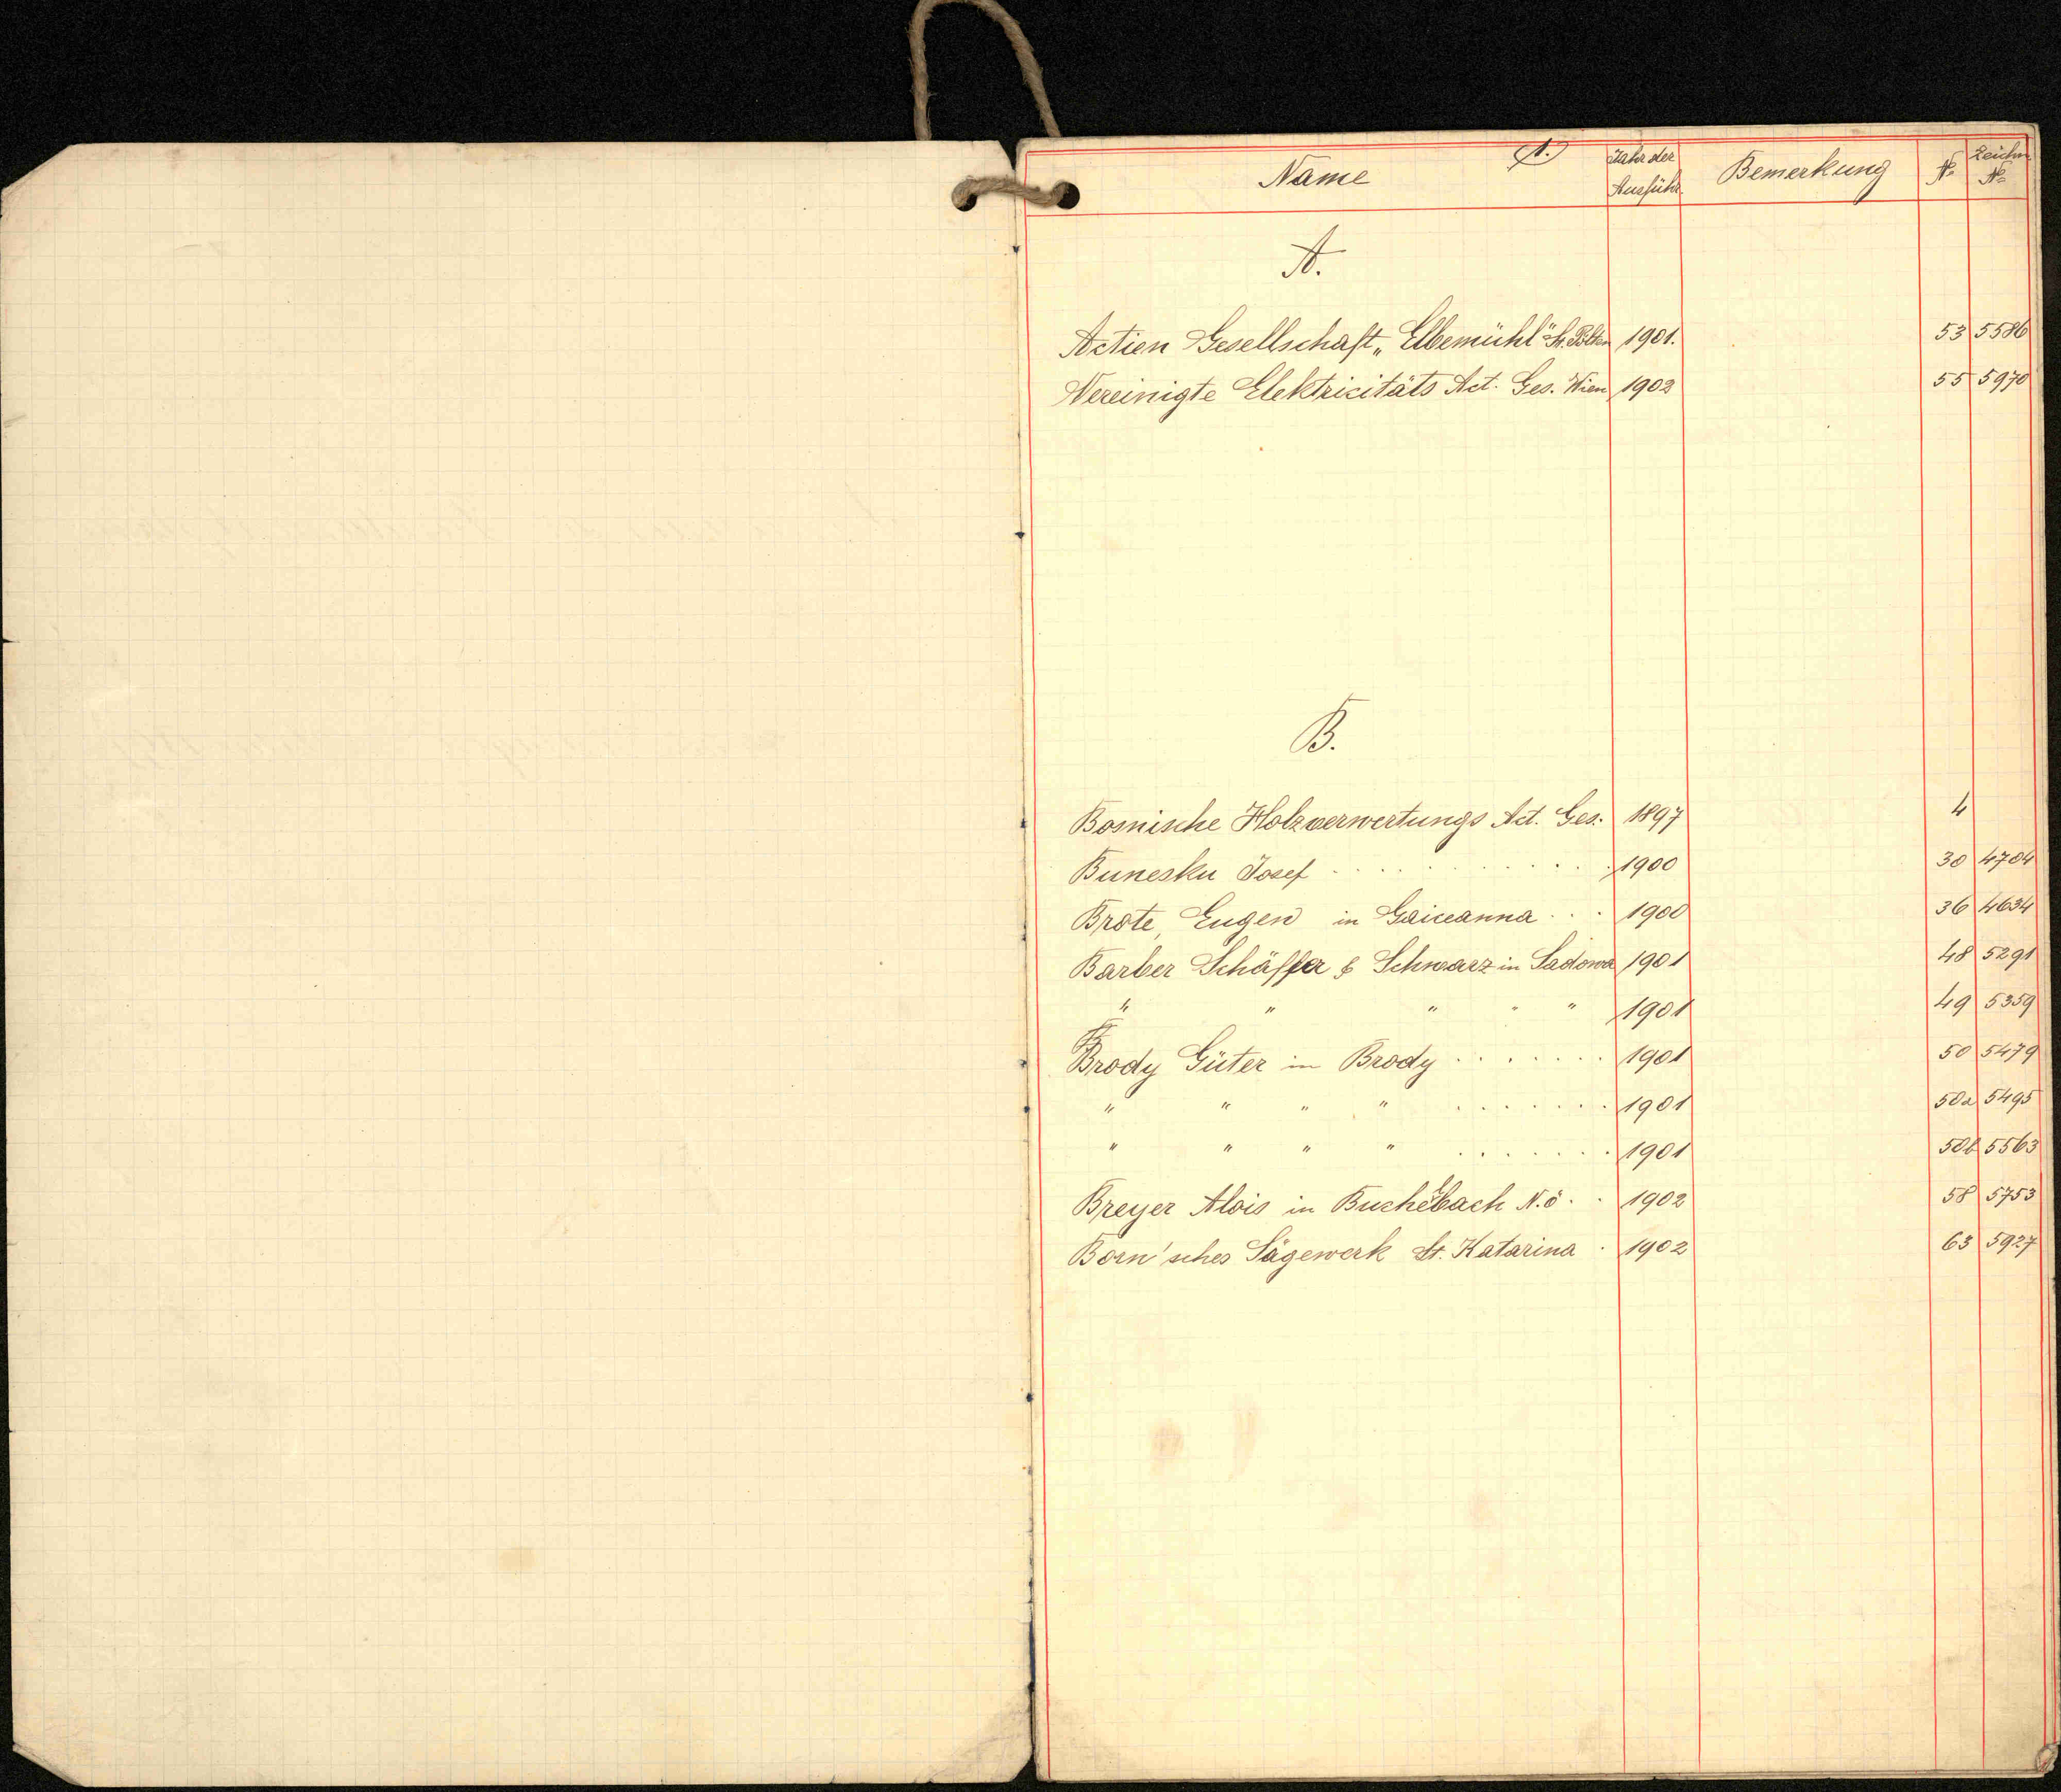 1.
Name Jahr der Ausführ. Bemerkung № Zeichn. №
A.
Actien Gesellschaft „Elbemühl" St. Pölten 1901. 53 5586
Vereinigte Elektricitäts Act. Ges. Wien 1902 55 5970
B.
Bosnische Holzverwertungs Act. Ges. 1897 4
Bunesku Josef . . . . . . . . 1900 30 4704
Brote, Eugen in Gaiceanna . . . 1900 36 4634
Barber Schäffer & Schwarz in Sadowa 1901 48 5291
" " " " " 1901 49 5359
Brody Güter in Brody . . . . . . . 1901 50 5479
" " " " . . . . . . . 1901 50a 5495
" " " " . . . . . . . 1901 50b 5563
Breyer Alois in Buchelbach N.ö. . 1902 58 5753
Born'sches Sägewerk St. Katarina . 1902 63 5927